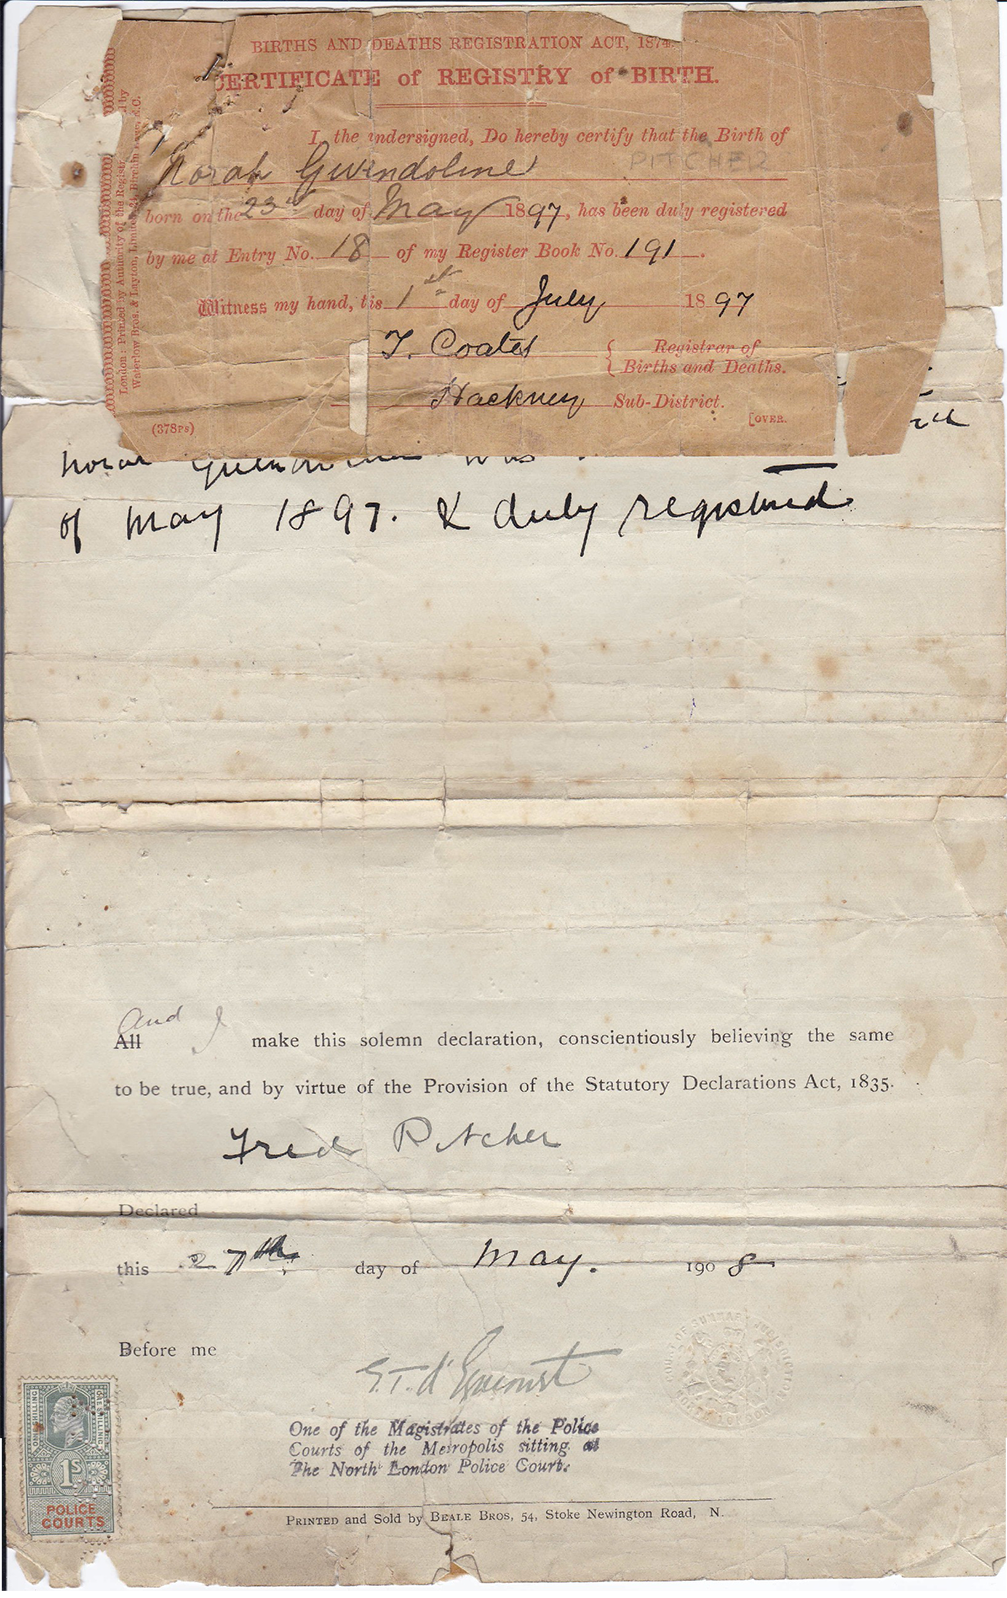 BIRTHS AND DEATHS REGISTRATION ACT, 1874.
CERTIFICATE of REGISTRY of BIRTH.
I, the undersigned, Do hereby certify that the Birth of
Norah Gwendoline PITCHER
born on the 23rd day of May 1897, has been duly registered
by me at Entry No. 18 of my Register Book No. 191.
Witness my hand, this 1st day of July 1897
T. Coates { Registrar of
Births and Deaths.
Hackney Sub-District.
(378PS) [OVER.
London: Printed by Authority of the Registr
by
Waterlow Bros. & Layton, Limited, 24, Birchin Lane, E.C.
Norah Gwendoline was
of May 1897. & duly registered
and I
All make this solemn declaration, conscientiously believing the same
to be true, and by virtue of the Provision of the Statutory Declarations Act, 1835.
Fred Pitcher
Declared
this 27th day of May. 1908
Before me
One of the Magistrates of the Police
Courts of the Metropolis sitting at
The North London Police Court.
ONE SHILLING
1S
POLICE
COURTS
PRINTED and Sold by BEALE BROS, 54, Stoke Newington Road, N.